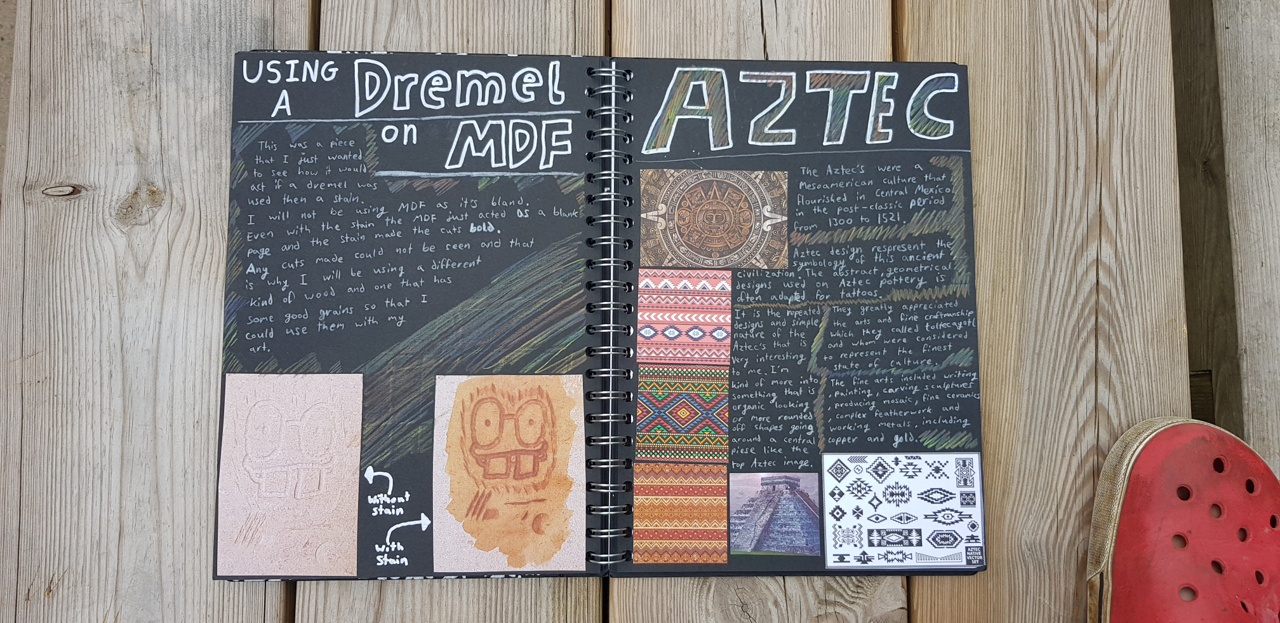 USING
A
Dremel
on MDF
This was a piece
that I just wanted
to see how it would
act if a dremel was
used then a stain.
I will not be using MDF as it's bland.
Even with the stain the MDF just acted as a blank
page and the stain made the cuts bold.
Any cuts made could not be seen and that
is why I will be using a different
kind of wood and one that has
some good grains so that I
could use them with my
art.
Without
stain
With
Stain
AZTEC
The Aztec's were a
Mesoamerican culture that
flourished in Central Mexico
in the post-classic period
from 1300 to 1521.
Aztec design respresent the
symbology of this ancient
civilization. The abstract, geometrical
designs used on Aztec pottery is
often adapted for tattoos.
It is the repeated
designs and simple
nature of the
Aztec's that is
very interesting
to me. I'm
kind of more into
something that is
organic looking
or more rounded
off shapes going
around a central
piese like the
top Aztec image.
They greatly appreciated
the arts and fine craftmanship
which they called toltecayotl
and whom were considered
to represent the finest
state of culture.
The fine arts included writing
, painting, carving sculptures
, producing mosaic, fine ceramics
, complex featherwork and
working metals, including
copper and gold.
AZTEC
NATIVE
VECTOR
SET